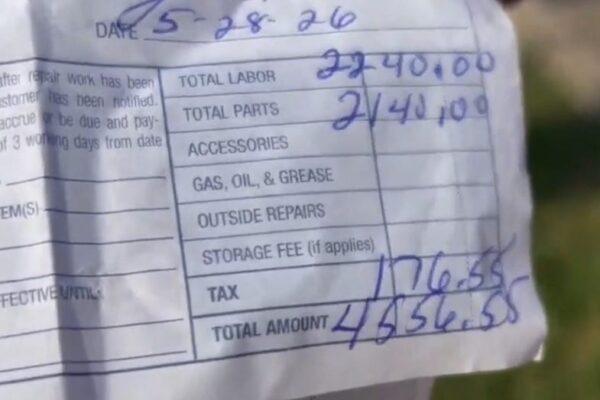 DATE 5-28-26
after repair work has been
stomer has been notified.
accrue or be due and pay-
of 3 working days from date
TOTAL LABOR 2240.00
TOTAL PARTS 2140.00
ACCESSORIES
GAS, OIL, & GREASE
EM(S)
OUTSIDE REPAIRS
STORAGE FEE (if applies)
FECTIVE UNTIL:
TAX 176.55
TOTAL AMOUNT 4556.55